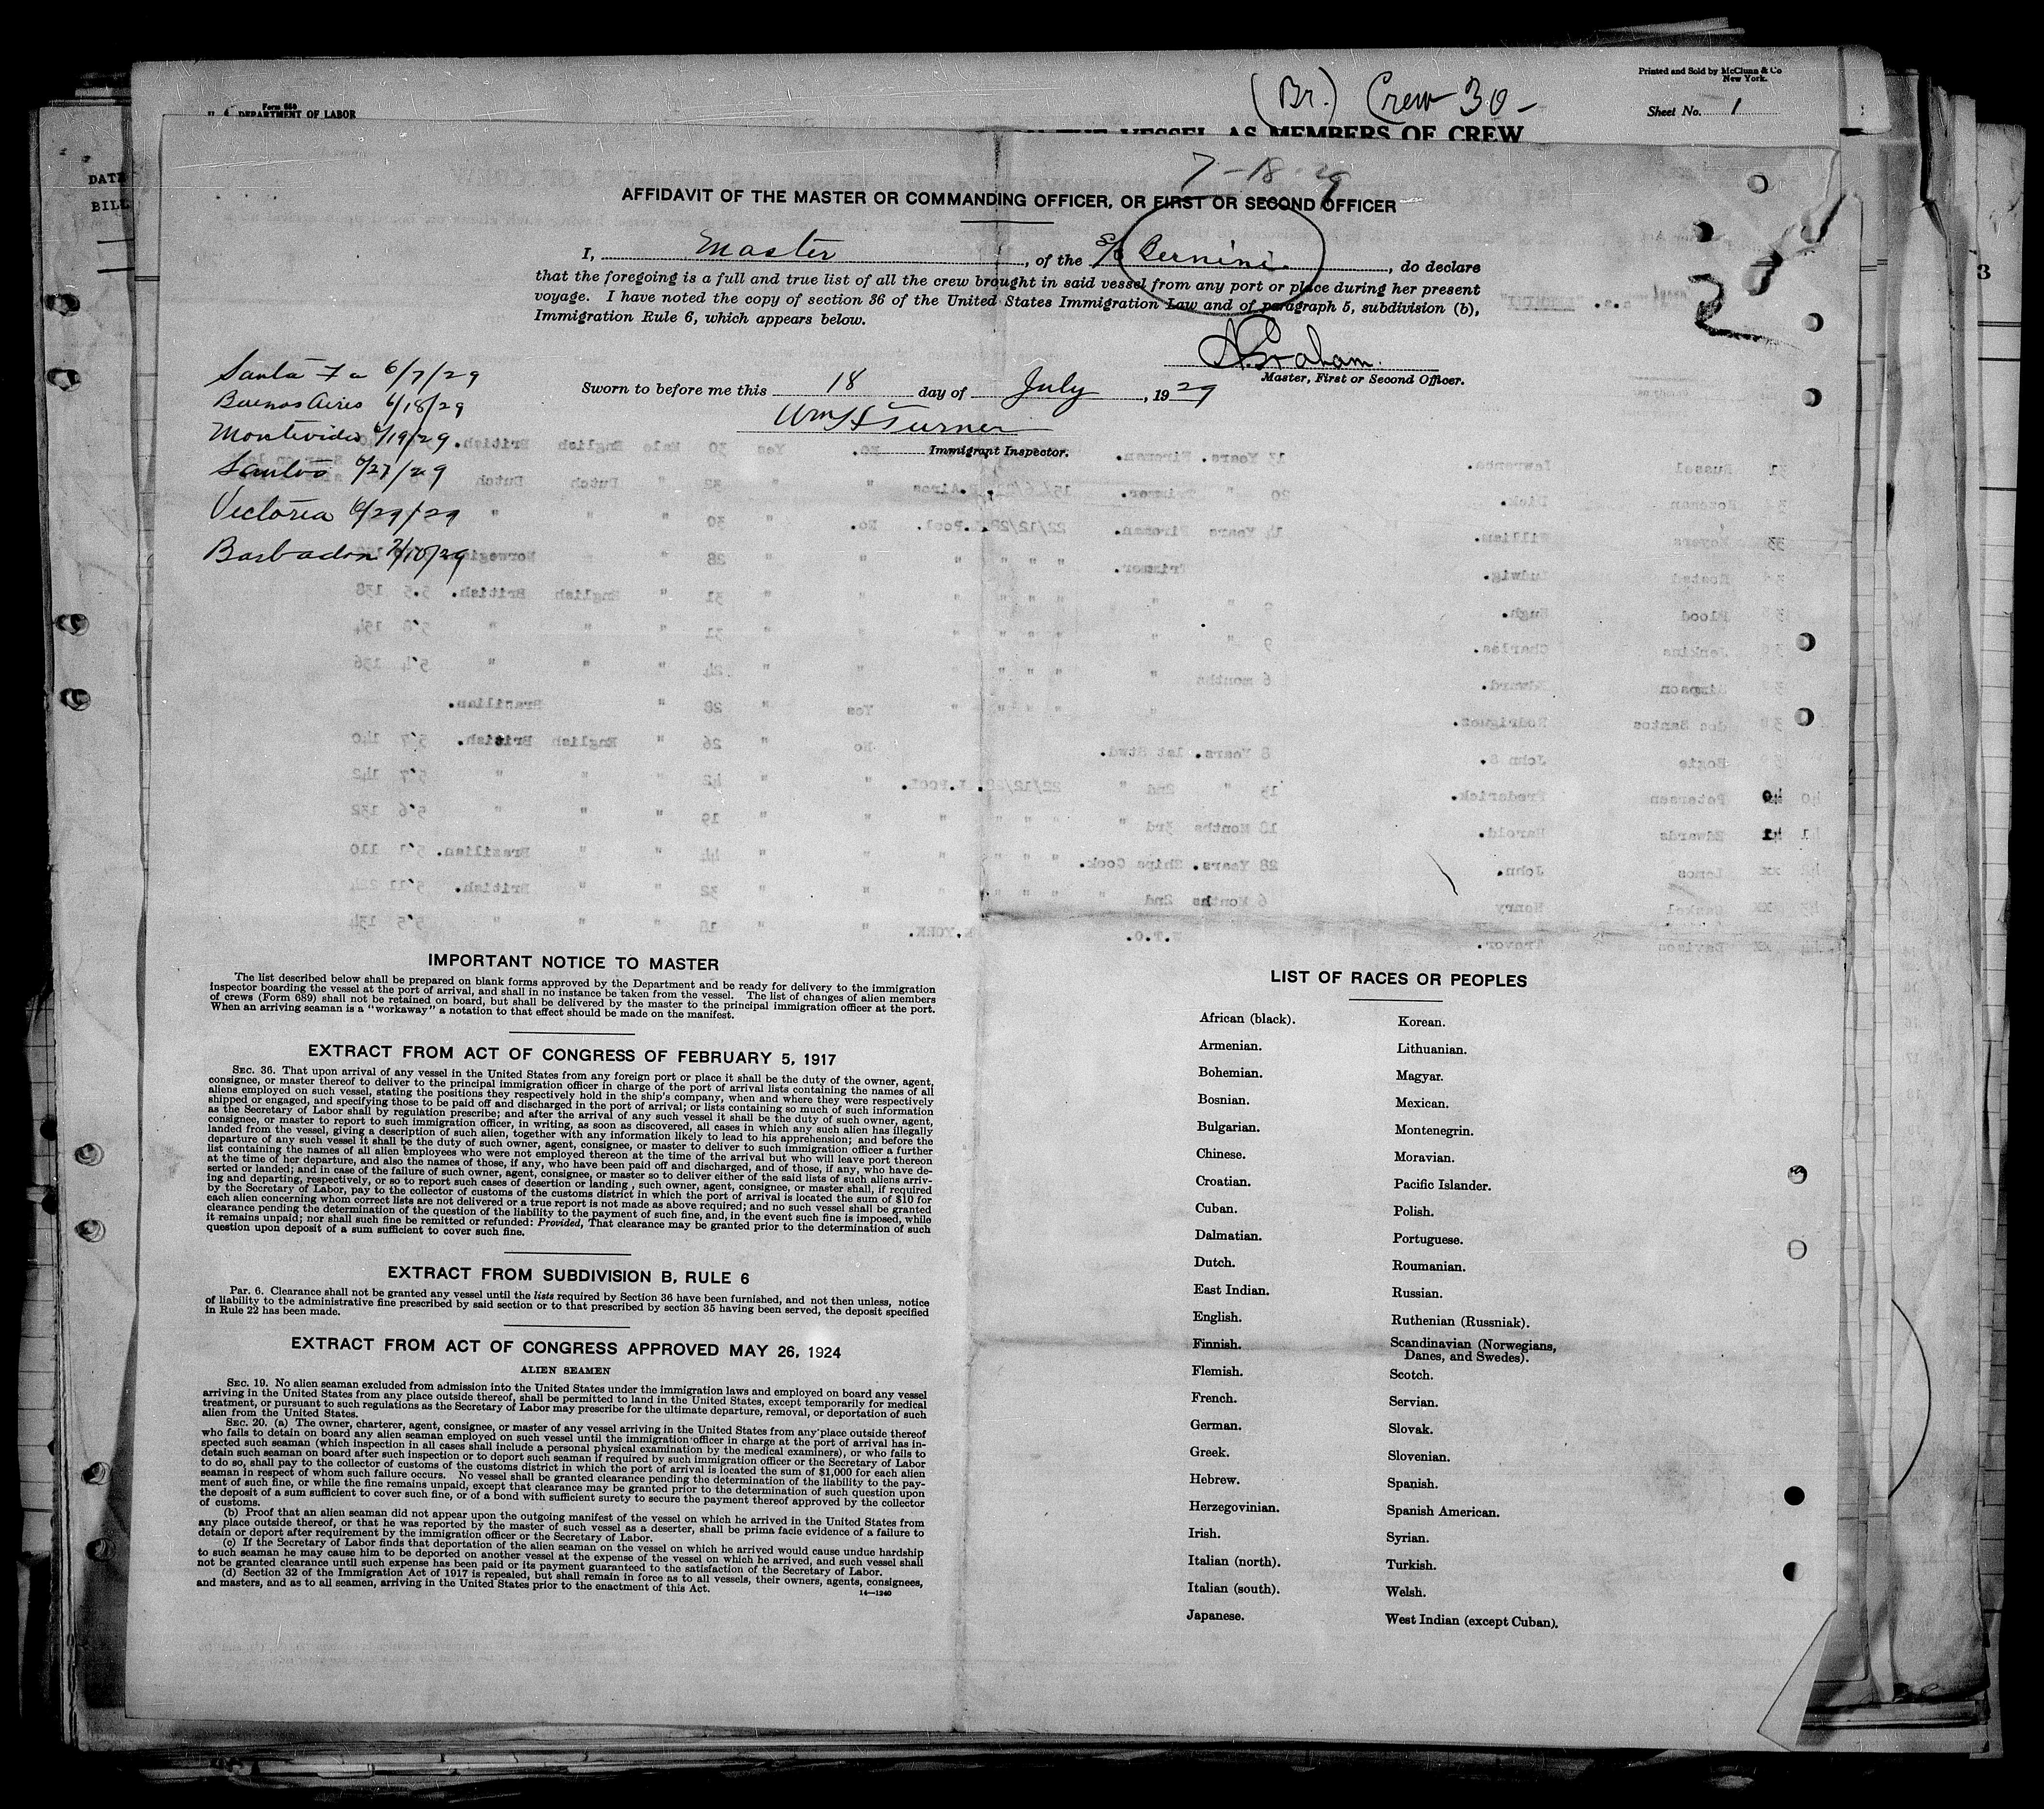 Printed and Sold by McClunn & Co
New York.
(Br.) Crew 30 -
Sheet No. 1
Form 680
U. S. DEPARTMENT OF LABOR
VESSEL AS MEMBERS OF CREW
DATE
BILL
3
7-18-29
AFFIDAVIT OF THE MASTER OR COMMANDING OFFICER, OR FIRST OR SECOND OFFICER
I, Master, of the S/S Bernini, do declare
that the foregoing is a full and true list of all the crew brought in said vessel from any port or place during her present
voyage. I have noted the copy of section 36 of the United States Immigration Law and of paragraph 5, subdivision (b),
Immigration Rule 6, which appears below.
2
A. Graham.
Master, First or Second Officer.
Sworn to before me this 18 day of July, 1929
Wm H Turner
Immigrant Inspector.
Santa Fa 6/7/29
Buenos Aires 6/18/29
Montevideo 6/19/29
Santos 6/27/29
Victoria 6/29/29
Barbados 7/10/29
IMPORTANT NOTICE TO MASTER
The list described below shall be prepared on blank forms approved by the Department and be ready for delivery to the immigration
inspector boarding the vessel at the port of arrival, and shall in no instance be taken from the vessel. The list of changes of alien members
of crews (Form 689) shall not be retained on board, but shall be delivered by the master to the principal immigration officer at the port.
When an arriving seaman is a "workaway" a notation to that effect should be made on the manifest.
EXTRACT FROM ACT OF CONGRESS OF FEBRUARY 5, 1917
SEC. 36. That upon arrival of any vessel in the United States from any foreign port or place it shall be the duty of the owner, agent,
consignee, or master thereof to deliver to the principal immigration officer in charge of the port of arrival lists containing the names of all
aliens employed on such vessel, stating the positions they respectively hold in the ship's company, when and where they were respectively
shipped or engaged, and specifying those to be paid off and discharged in the port of arrival; or lists containing so much of such information
as the Secretary of Labor shall by regulation prescribe; and after the arrival of any such vessel it shall be the duty of such owner, agent,
consignee, or master to report to such immigration officer, in writing, as soon as discovered, all cases in which any such alien has illegally
landed from the vessel, giving a description of such alien, together with any information likely to lead to his apprehension; and before the
departure of any such vessel it shall be the duty of such owner, agent, consignee, or master to deliver to such immigration officer a further
list containing the names of all alien employees who were not employed thereon at the time of the arrival but who will leave port thereon
at the time of her departure, and also the names of those, if any, who have been paid off and discharged, and of those, if any, who have de-
serted or landed; and in case of the failure of such owner, agent, consignee, or master so to deliver either of the said lists of such aliens arriv-
ing and departing, respectively, or so to report such cases of desertion or landing , such owner, agent, consignee, or master shall, if required
by the Secretary of Labor, pay to the collector of customs of the customs district in which the port of arrival is located the sum of $10 for
each alien concerning whom correct lists are not delivered or a true report is not made as above required; and no such vessel shall be granted
clearance pending the determination of the question of the liability to the payment of such fine, and, in the event such fine is imposed, while
it remains unpaid; nor shall such fine be remitted or refunded: Provided, That clearance may be granted prior to the determination of such
question upon deposit of a sum sufficient to cover such fine.
EXTRACT FROM SUBDIVISION B, RULE 6
Par. 6. Clearance shall not be granted any vessel until the lists required by Section 36 have been furnished, and not then unless, notice
of liability to the administrative fine prescribed by said section or to that prescribed by section 35 having been served, the deposit specified
in Rule 22 has been made.
EXTRACT FROM ACT OF CONGRESS APPROVED MAY 26, 1924
ALIEN SEAMEN
SEC. 19. No alien seaman excluded from admission into the United States under the immigration laws and employed on board any vessel
arriving in the United States from any place outside thereof, shall be permitted to land in the United States, except temporarily for medical
treatment, or pursuant to such regulations as the Secretary of Labor may prescribe for the ultimate departure, removal, or deportation of such
alien from the United States.
SEC. 20. (a) The owner, charterer, agent, consignee, or master of any vessel arriving in the United States from any place outside thereof
who fails to detain on board any alien seaman employed on such vessel until the immigration officer in charge at the port of arrival has in-
spected such seaman (which inspection in all cases shall include a personal physical examination by the medical examiners), or who fails to
detain such seaman on board after such inspection or to deport such seaman if required by such immigration officer or the Secretary of Labor
to do so, shall pay to the collector of customs of the customs district in which the port of arrival is located the sum of $1,000 for each alien
seaman in respect of whom such failure occurs. No vessel shall be granted clearance pending the determination of the liability to the pay-
ment of such fine, or while the fine remains unpaid, except that clearance may be granted prior to the determination of such question upon
the deposit of a sum sufficient to cover such fine, or of a bond with sufficient surety to secure the payment thereof approved by the collector
of customs.
(b) Proof that an alien seaman did not appear upon the outgoing manifest of the vessel on which he arrived in the United States from
any place outside thereof, or that he was reported by the master of such vessel as a deserter, shall be prima facie evidence of a failure to
detain or deport after requirement by the immigration officer or the Secretary of Labor.
(c) If the Secretary of Labor finds that deportation of the alien seaman on the vessel on which he arrived would cause undue hardship
to such seaman he may cause him to be deported on another vessel at the expense of the vessel on which he arrived, and such vessel shall
not be granted clearance until such expense has been paid or its payment guaranteed to the satisfaction of the Secretary of Labor.
(d) Section 32 of the Immigration Act of 1917 is repealed, but shall remain in force as to all vessels, their owners, agents, consignees,
and masters, and as to all seamen, arriving in the United States prior to the enactment of this Act.
14-1240
LIST OF RACES OR PEOPLES
African (black).
Armenian.
Bohemian.
Bosnian.
Bulgarian.
Chinese.
Croatian.
Cuban.
Dalmatian.
Dutch.
East Indian.
English.
Finnish.
Flemish.
French.
German.
Greek.
Hebrew.
Herzegovinian.
Irish.
Italian (north).
Italian (south).
Japanese.
Korean.
Lithuanian.
Magyar.
Mexican.
Montenegrin.
Moravian.
Pacific Islander.
Polish.
Portuguese.
Roumanian.
Russian.
Ruthenian (Russniak).
Scandinavian (Norwegians,
Danes, and Swedes).
Scotch.
Servian.
Slovak.
Slovenian.
Spanish.
Spanish American.
Syrian.
Turkish.
Welsh.
West Indian (except Cuban).